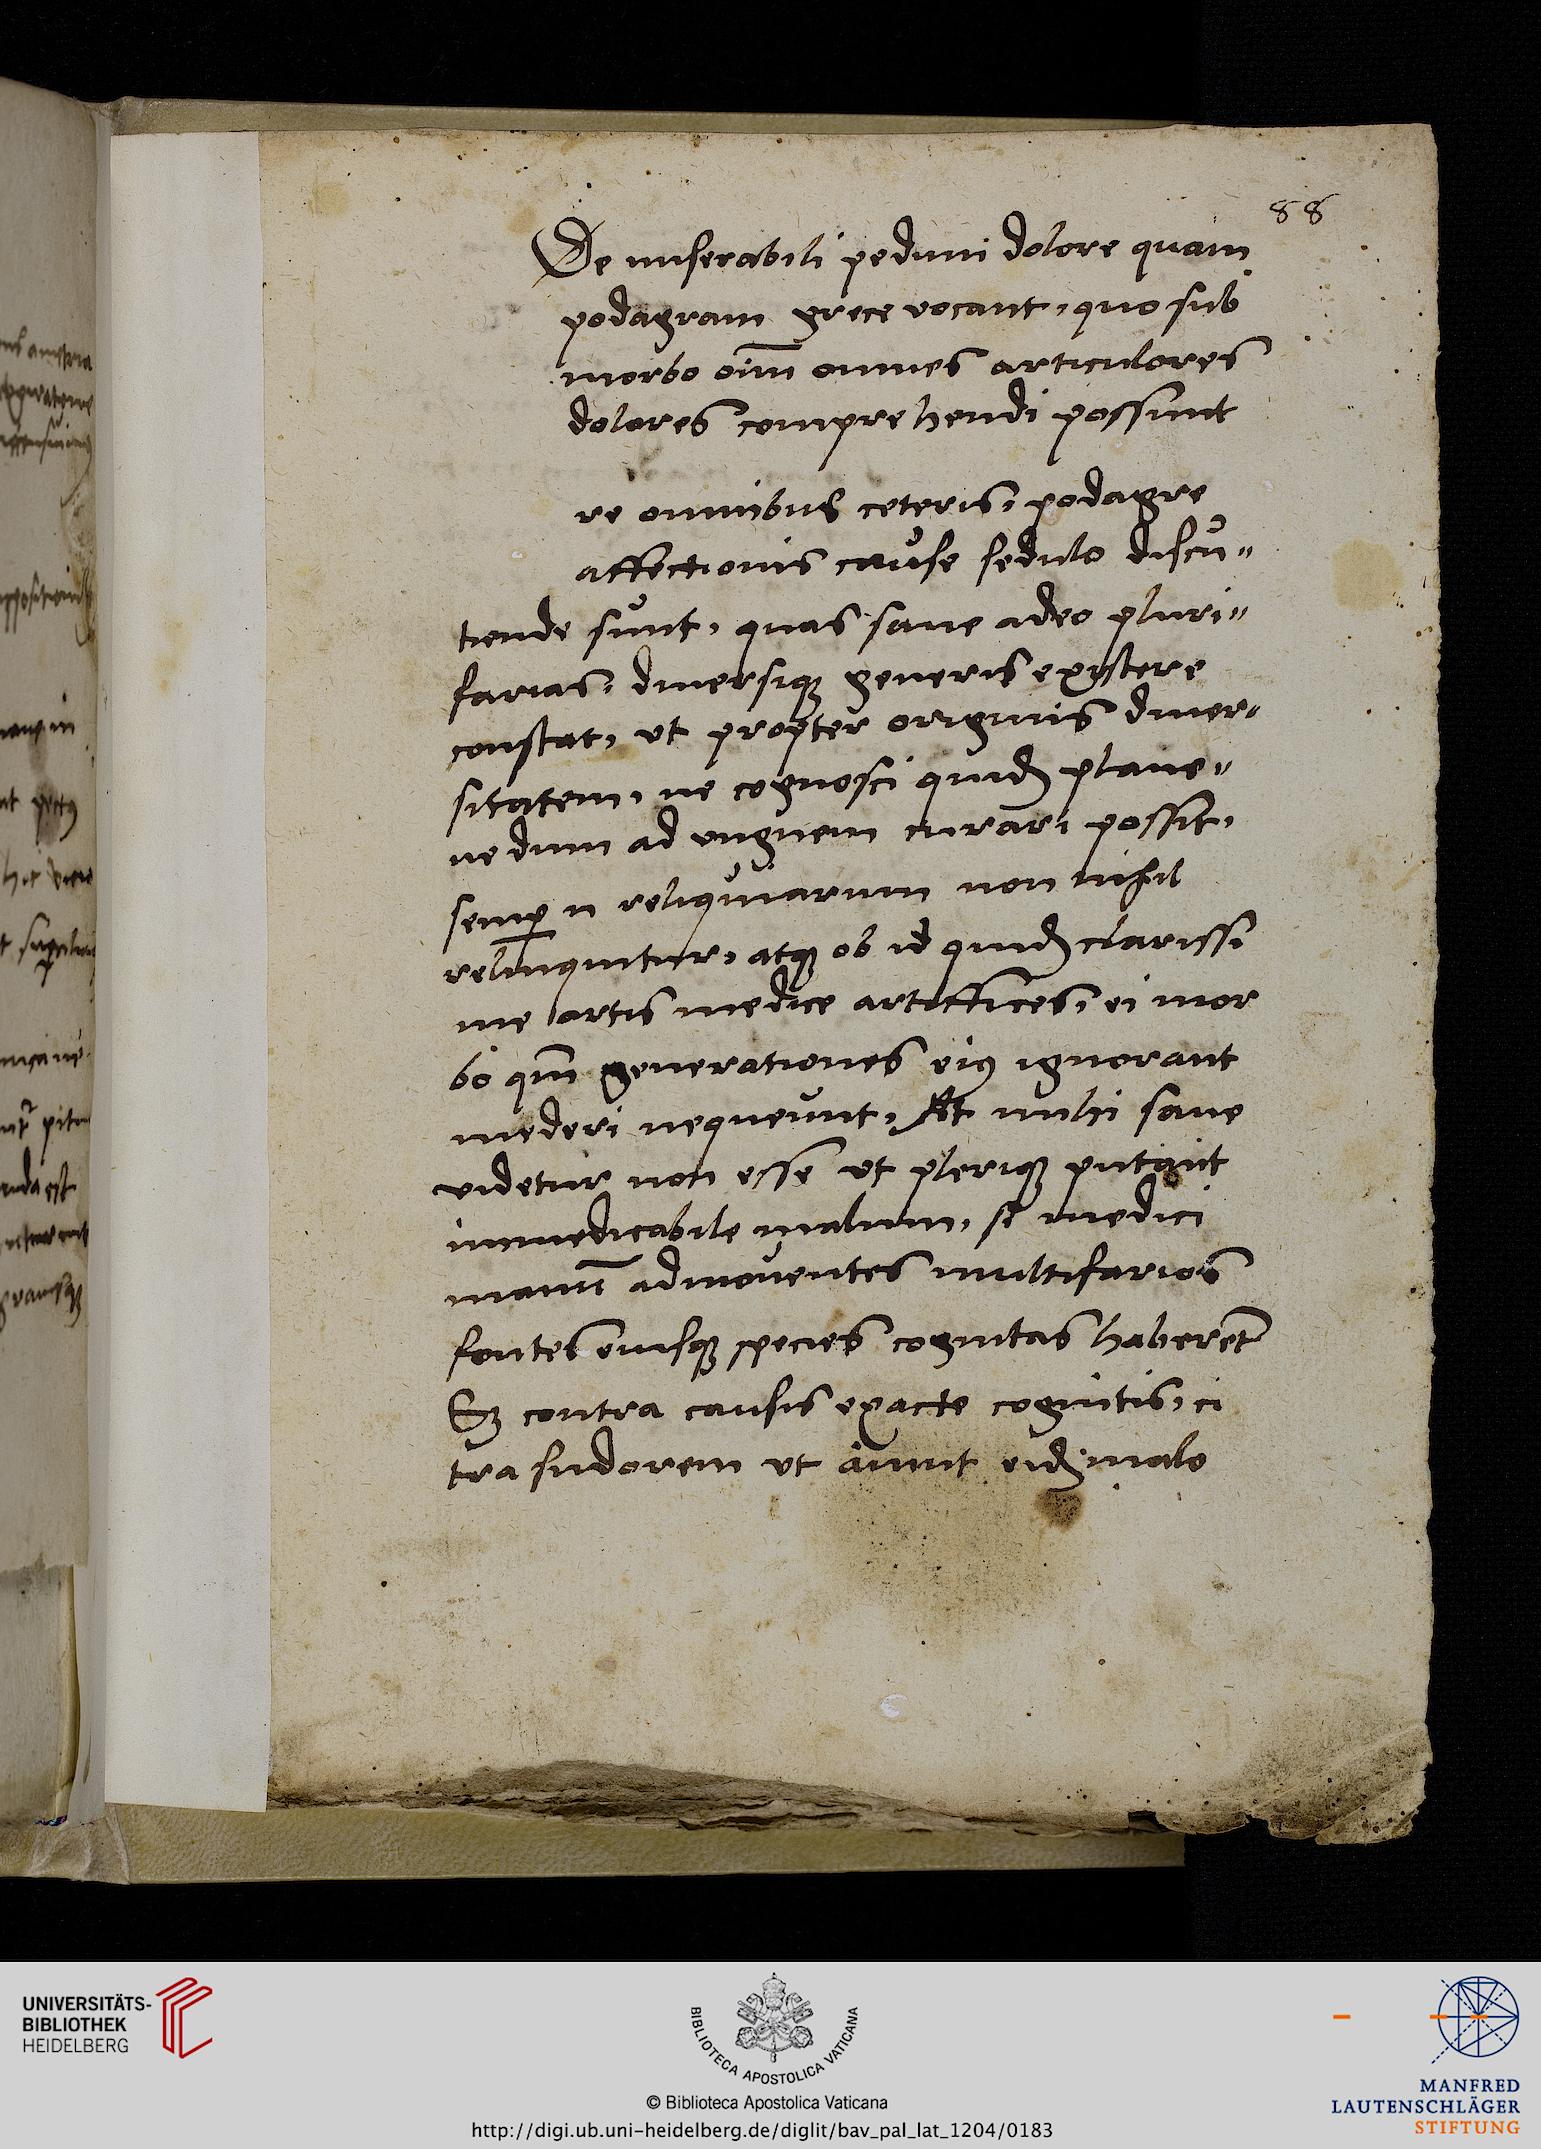 88
De miserabili pedum dolore quam
podagram grece vocant, quo sub
morbo oīm omnes articulores
dolores comprehendi possunt
re omnibus ceteris, podagre
affectionis cause sedulo discu„
tiende sunt, quas sane adeo pluri„
farias, diuersiqꝫ generis existere
constat, vt propter originis diuer„
sitatem, ne cognosci quidꝫ plane„
ne dum ad vnguem curari possit,
semꝑ n̄ reliquiarum non nihil
relinquitur, atqꝫ ob id quidꝫ clarissi
me artis medice artiffices, ei mor
bo qm̄ generationes eiꝰ ignorant
mederi nequeunt, At mihi sane
videtur non esse vt pleriqꝫ putant
immedicabile malum, si medici
manū admouentes multifarios
fontes eiusqꝫ species cognitas haberēt
Sꝫ contra causis exacte cognitis, ci
tra sudorem vt aiunt eidꝫ malo
UNIVERSITÄTS-
BIBLIOTHEK
HEIDELBERG
BIBLIOTECA APOSTOLICA VATICANA
© Biblioteca Apostolica Vaticana
http://digi.ub.uni-heidelberg.de/diglit/bav_pal_lat_1204/0183
MANFRED
LAUTENSCHLÄGER
STIFTUNG